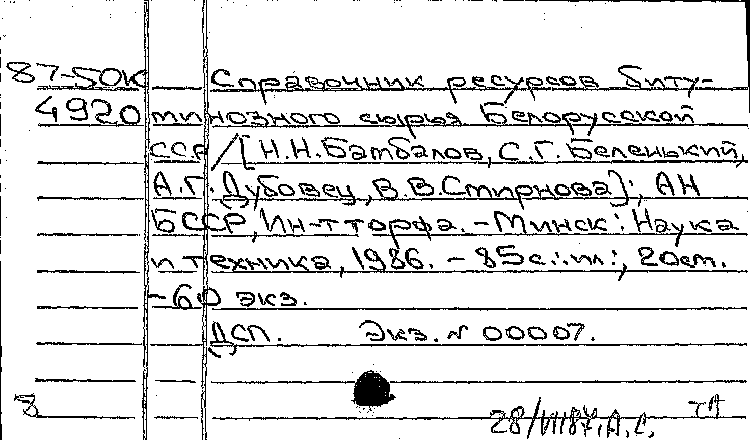 87-50К Справочник ресурсов биту-
4920 минозного сырья Белорусской
ССР / [Н.Н.Батбалов, С.Г. Беленький,
А.Г. Дубовец, В.В.Смирнова]; АН
БССР, Ин-т торфа. - Минск: Наука
и техника, 1986. - 85 с.: ил.; 20 см.
- 60 экз.
ДСП. Экз. № 00007.
8